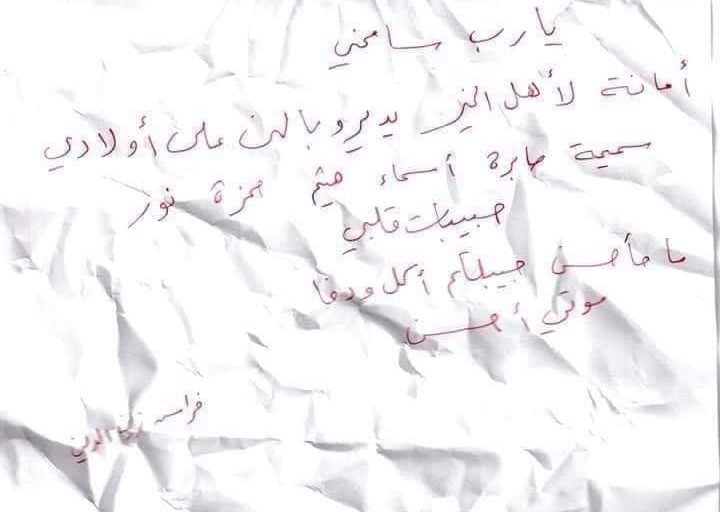 يا رب سامحني
أمانة لأهل الخير يديرو بالهن على أولادي
سمية صابرة أسماء هيثم حمزة نور
حبيبات قلبي
ما حأحسن جيبلكم أكل ودفا
موتي أحسن
فراس زين الدين